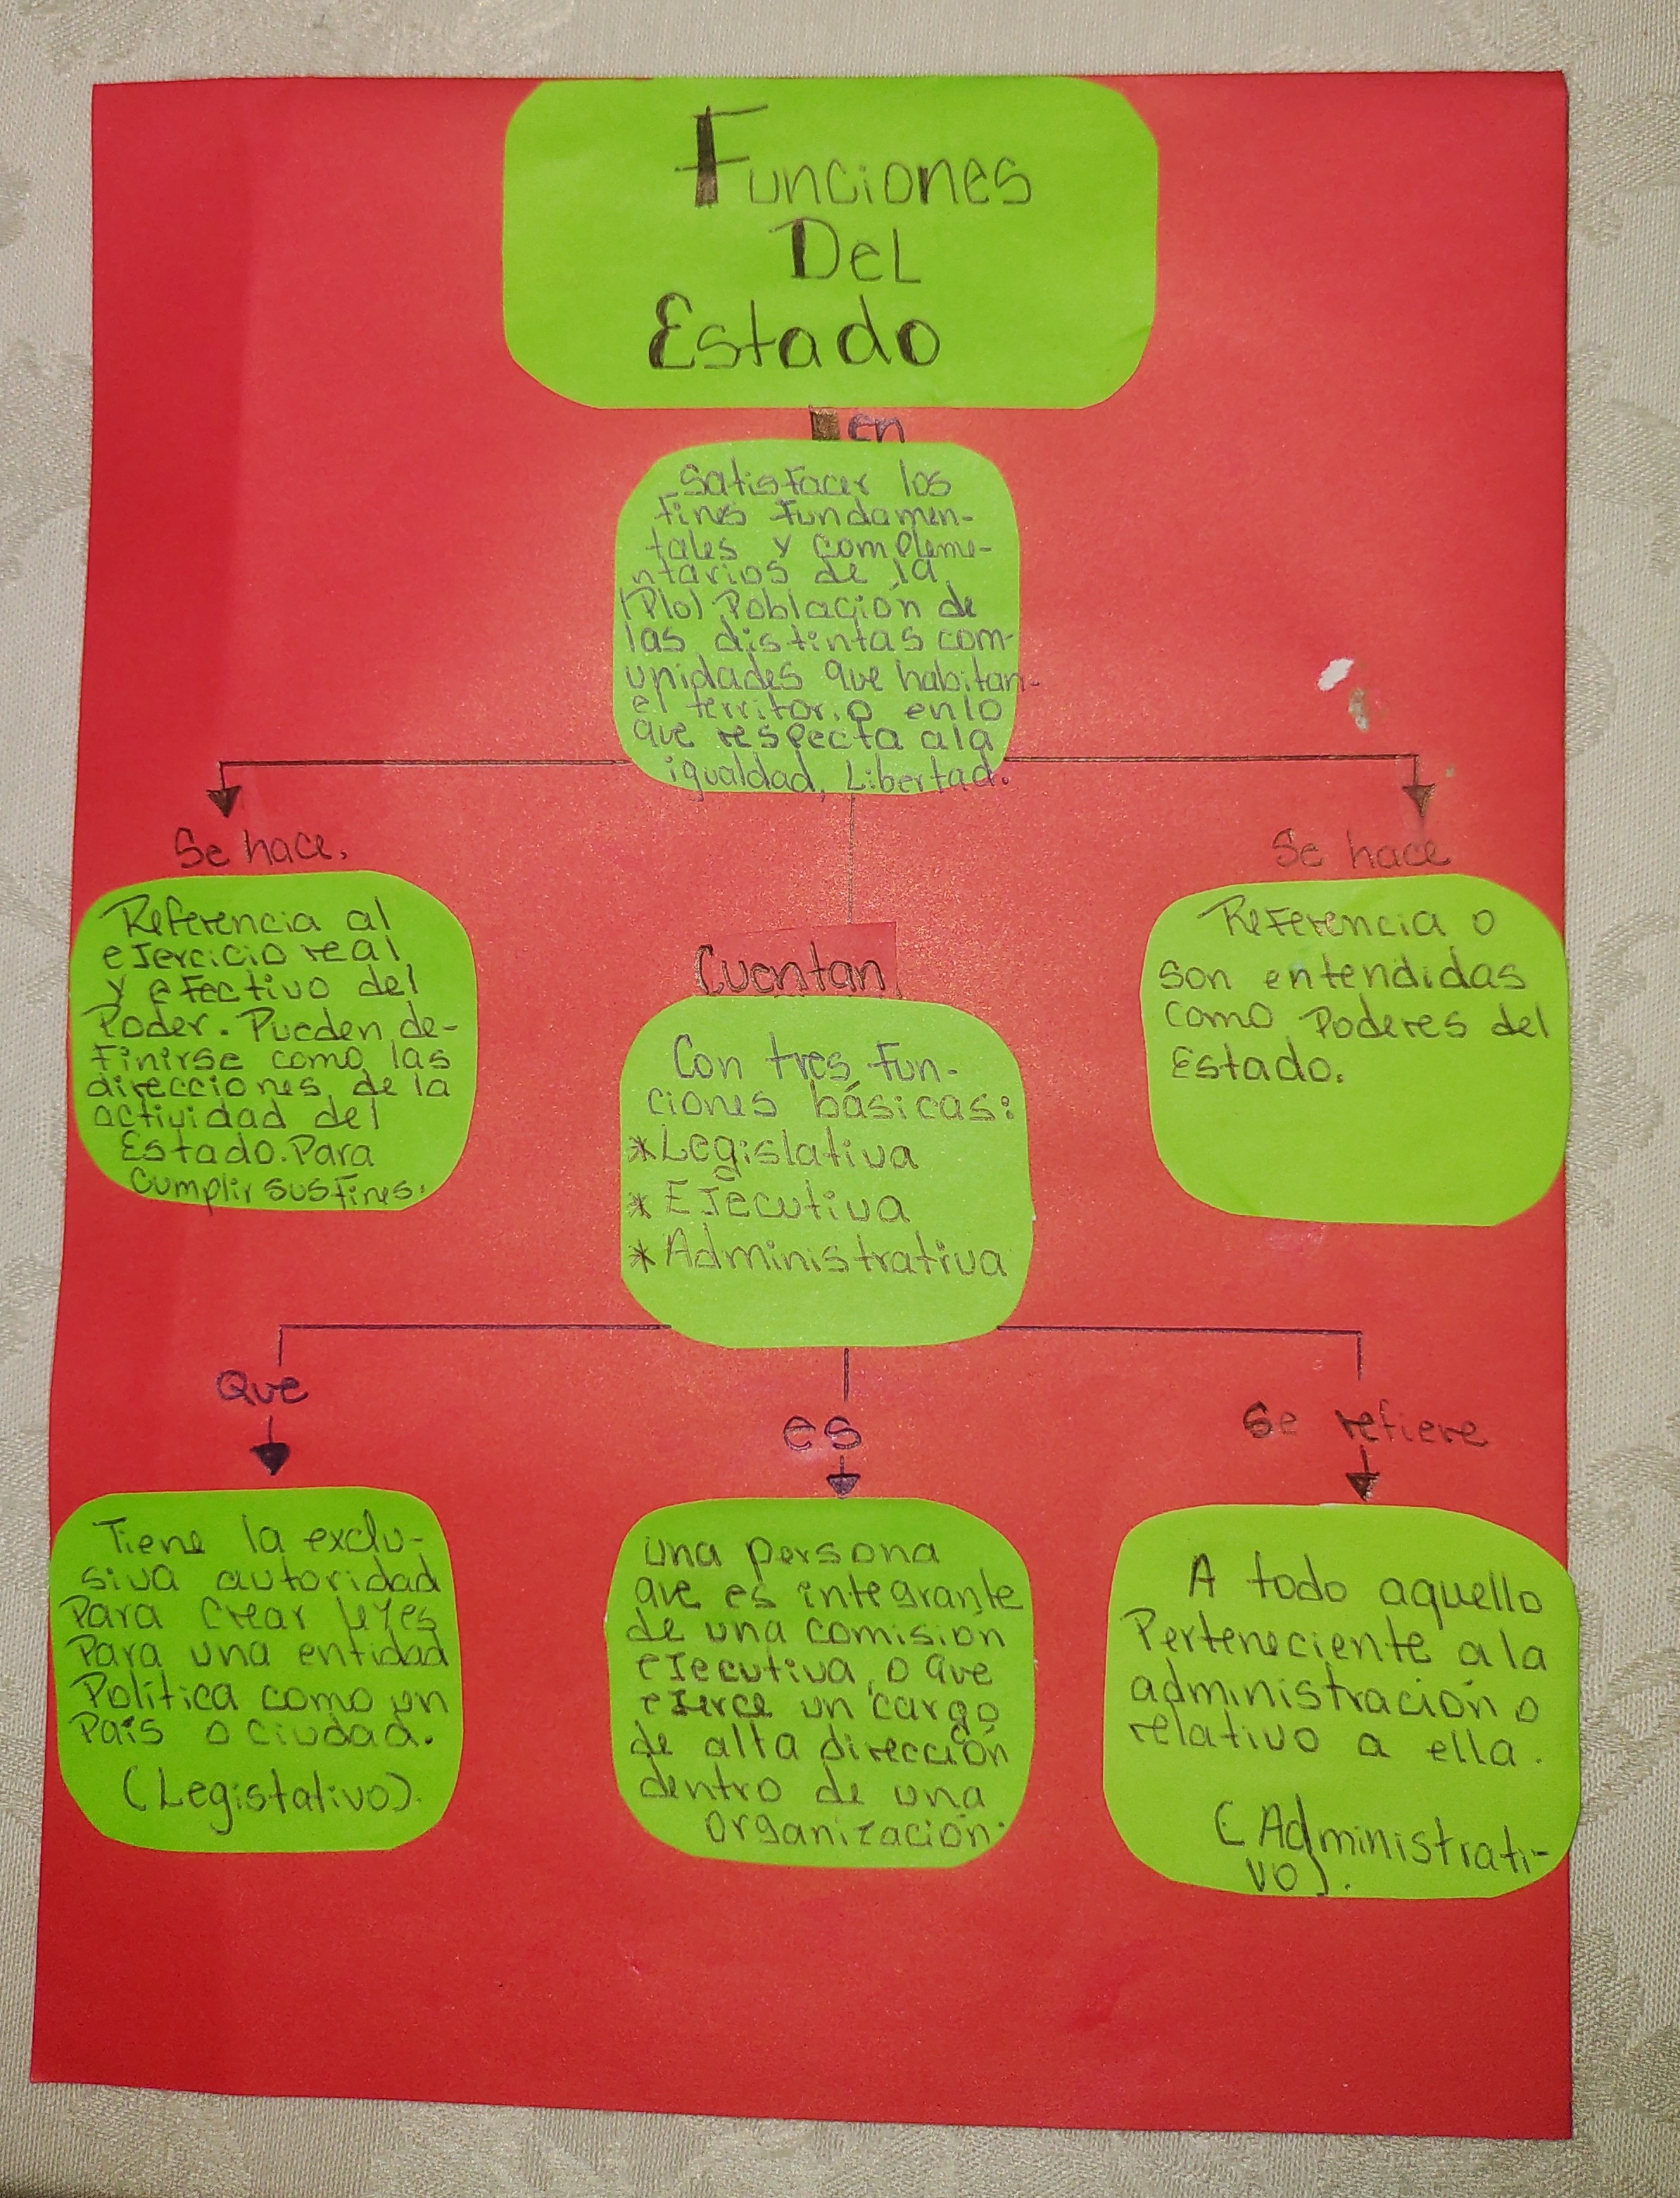 Funciones
Del
Estado
en
Satisfacer los
fines fundamen-
tales y compleme-
ntarios de la
(Plo) Población de
las distintas com-
unidades que habitan-
el territorio enlo
que respecta ala
igualdad, Libertad.
Se hace.
Referencia al
ejercicio real
y efectivo del
Poder. Pueden de-
finirse como las
direcciones de la
actividad del
Estado. Para
Cumplir sus fines.
Cuentan
Con tres fun-
ciones básicas:
*Legislativa
*Ejecutiva
*Administrativa
Se hace
Referencia o
son entendidas
como Poderes del
Estado.
Que
Tiene la exclu-
siva autoridad
Para crear leyes
Para una entidad
Política como un
País o ciudad.
(Legistativo).
es
una persona
que es integrante
de una comisión
ejecutiva, o que
ejerce un cargo
de alta dirección
dentro de una
organización.
Se refiere
A todo aquello
Perteneciente a la
administración o
relativo a ella.
(Administrati-
vo).